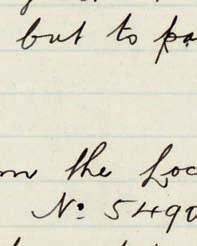 but to pa
m the Loc
No. 5490